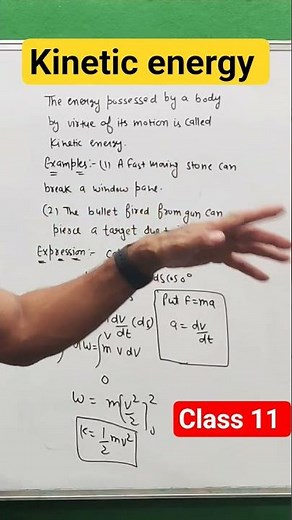 Kinetic energy
The energy possessed by a body
by virtue of its motion is called
Kinetic energy.
Examples:- (1) A fast moving stone can
break a window pane.
(2) The bullet fired from gun can
pierce a target due
Expression:-
ds cos 0°
Put F=ma
a = dv/dt
dv/dt (ds)
W = ∫ m v dv
0
W = m[v²/2]
K = 1/2 mv²
Class 11